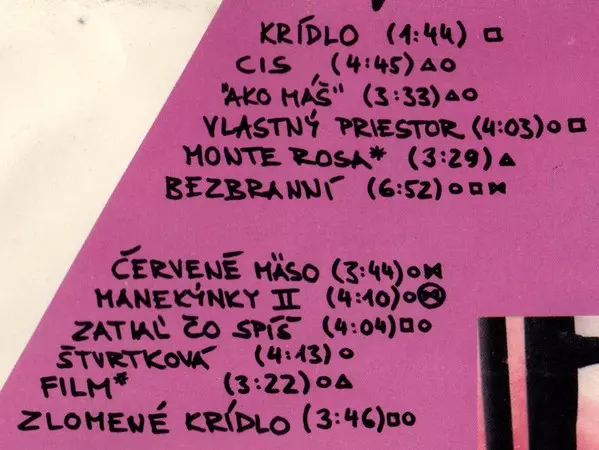 KRÍDLO (1:44) □
CIS (4:45) △○
"AKO MÁŠ" (3:33) △○
VLASTNÝ PRIESTOR (4:03) ○□
MONTE ROSA* (3:29) △
BEZBRANNÍ (6:52) ○□⋈
ČERVENÉ MÄSO (3:44) ○⋈
MANEKÝNKY II (4:10) ○⋈
ZATIAĽ ČO SPÍŠ (4:04) □○
ŠTVRTKOVÁ (4:13) ○
FILM* (3:22) ○△
ZLOMENÉ KRÍDLO (3:46) □○